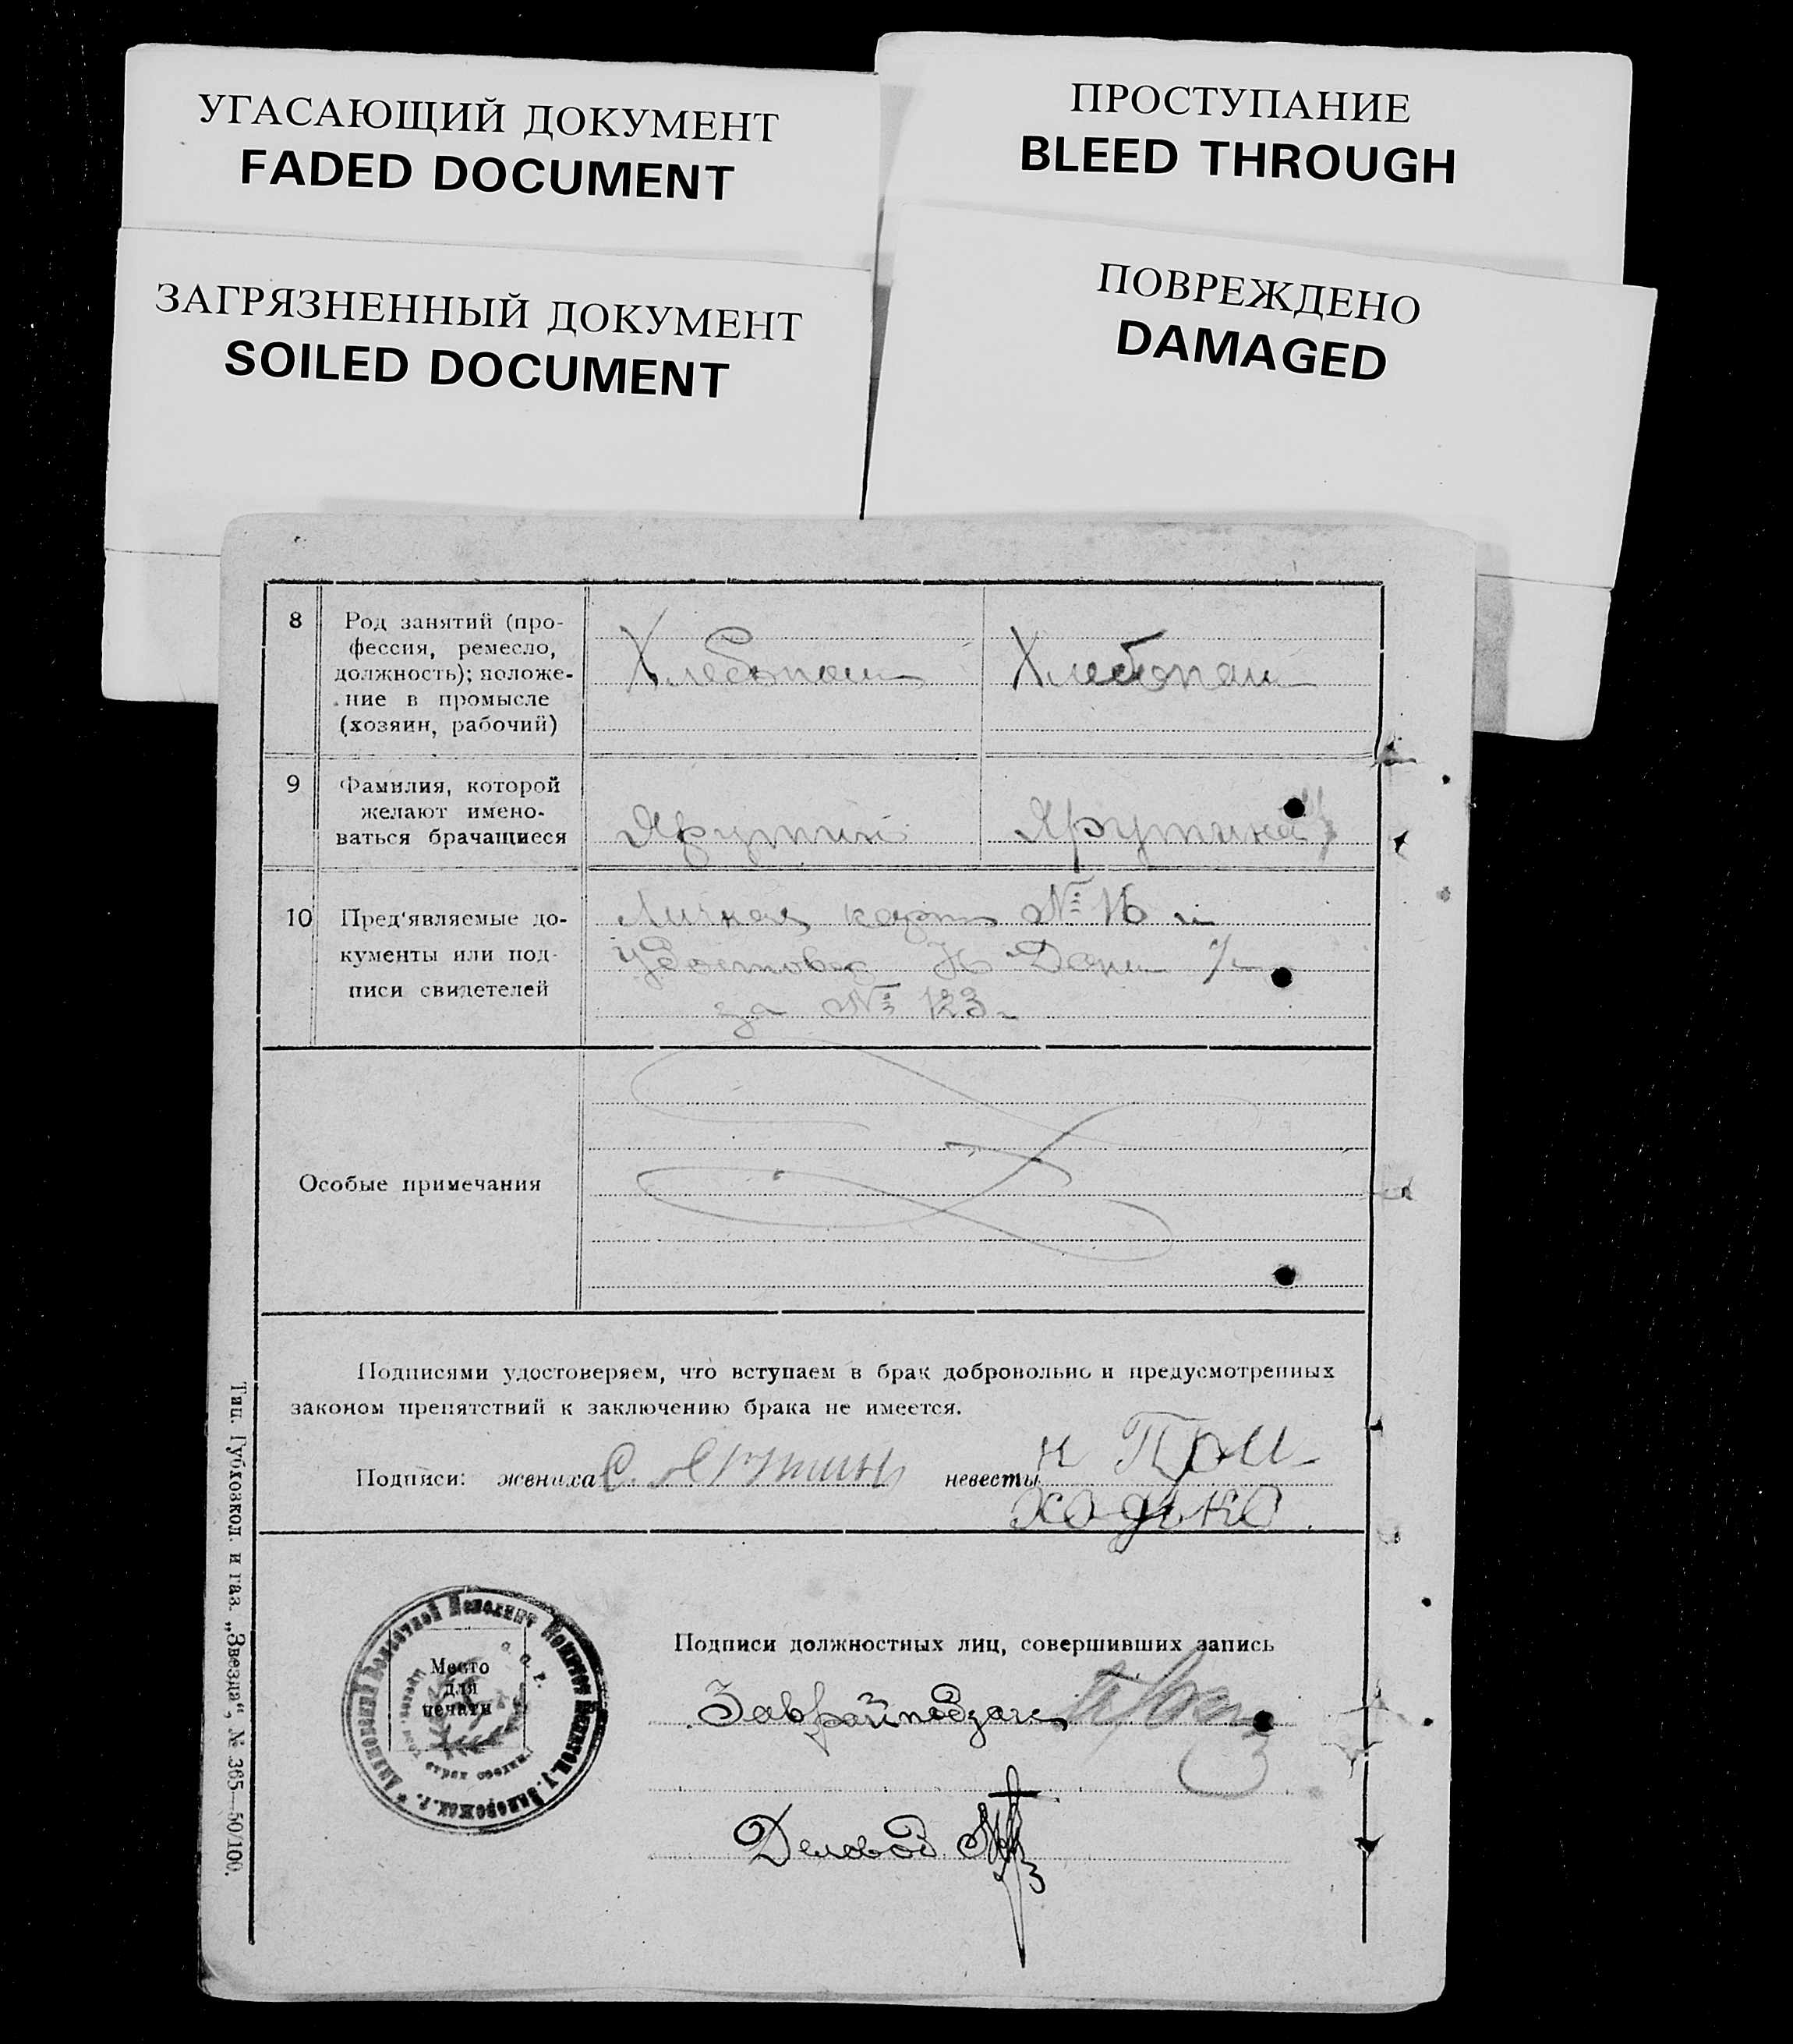 УГАСАЮЩИЙ ДОКУМЕНТ
FADED DOCUMENT
ПРОСТУПАНИЕ
BLEED THROUGH
ЗАГРЯЗНЕННЫЙ ДОКУМЕНТ
SOILED DOCUMENT
ПОВРЕЖДЕНО
DAMAGED
8 Род занятий (про-
фессия, ремесло,
должность); положе-
ние в промысле
(хозяин, рабочий)
Хлебопаш Хлебопаш
9 Фамилия, которой
желают имено-
ваться брачащиеся
Ярутин Ярутина
10 Пред'являемые до-
кументы или под-
писи свидетелей
Личная карт № 16 и
удостовер
за № 123
Особые примечания
Подписями удостоверяем, что вступаем в брак добровольно и предусмотренных
законом препятствий к заключению брака не имеется.
Подписи: жениха С. Ярутин невесты Н При-
ходько
Место
для
печати
Подписи должностных лиц, совершивших запись
Заврайподзагс
Деловод
Тип. Губхозкол. и газ. „Звезда“, № 365—50/100.